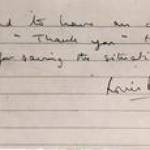 d to have an
"Thank you" t
for saving the situati